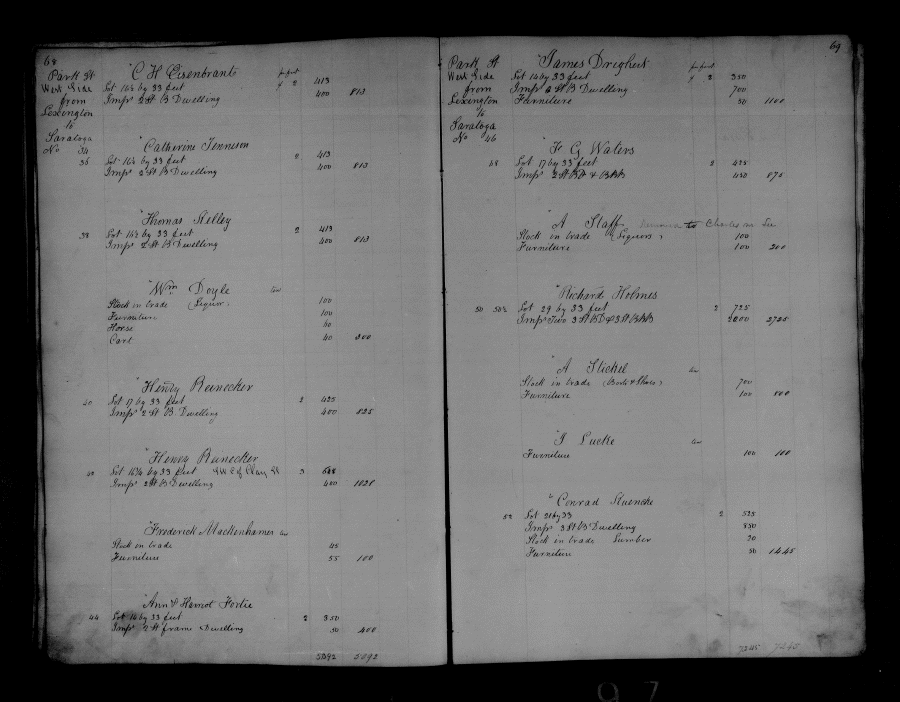 68
Park St
West Side
from
Lexington
to
Saratoga
No 34
"C H Eisenbrants per foot
Lot 16½ by 33 feet 2 413
Imps 2 St B Dwelling 400 813
"Catherine Tennison
36 Lot 16½ by 33 feet 2 413
Imps 2 St B Dwelling 400 813
"Thomas Stelley
38 Lot 16½ by 33 feet 2 413
Imps 2 St B Dwelling 400 813
"Wm Doyle
Stock in trade (Liquor) 100
Furniture 100
Horse 60
Cart 40 300
"Henry Runecker
40 Lot 17 by 33 feet 2 425
Imps 2 St B Dwelling 400 825
"Henry Runecker
Lot 16¼ by 33 feet Clay St 3 628
Imps 2 St B Dwelling 400 1028
"Frederick Mackenhamer
Stock in trade 45
Furniture 55 100
"Ann & Harriot Fortie
44 Lot 14 by 33 feet 2 350
Imps 2 St frame Dwelling 50 400
5092 5092
69
Park St
West Side
from
Lexington
to
Saratoga
No 46
"James Drighert per foot
Lot 14 by 33 feet 2 350
Imps 2 St B Dwelling 700
Furniture 50 1100
"F G Waters
48 Lot 17 by 33 feet 2 425
Imps 2 St 450 875
"A Staff to Charles
Stock in trade (Liquors) 100
Furniture 100 200
"Richard Holmes
50 50½ Lot 29 by 33 feet 2 725
Imps Two 3 St 2000 2725
"A Stickel
Stock in trade (Boots & Shoes) 700
Furniture 100 800
"J Lucke
Furniture 100 100
"Conrad Stuencke
52 Lot 21 by 33 2 525
Imps 3 St B Dwelling 850
Stock in trade Lumber 20
Furniture 50 1445
7245 7245
97